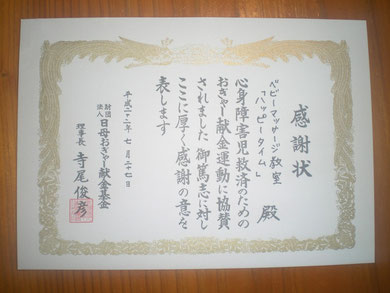 感謝状
ベビーマッサージ教室
「ハッピータイム」
殿
心身障害児救済のための
おぎゃー献金運動に協賛
されました御篤志に対し
ここに厚く感謝の意を
表します
平成二十二年七月二十七日
財団法人日母おぎゃー献金基金
理事長 寺尾俊彦